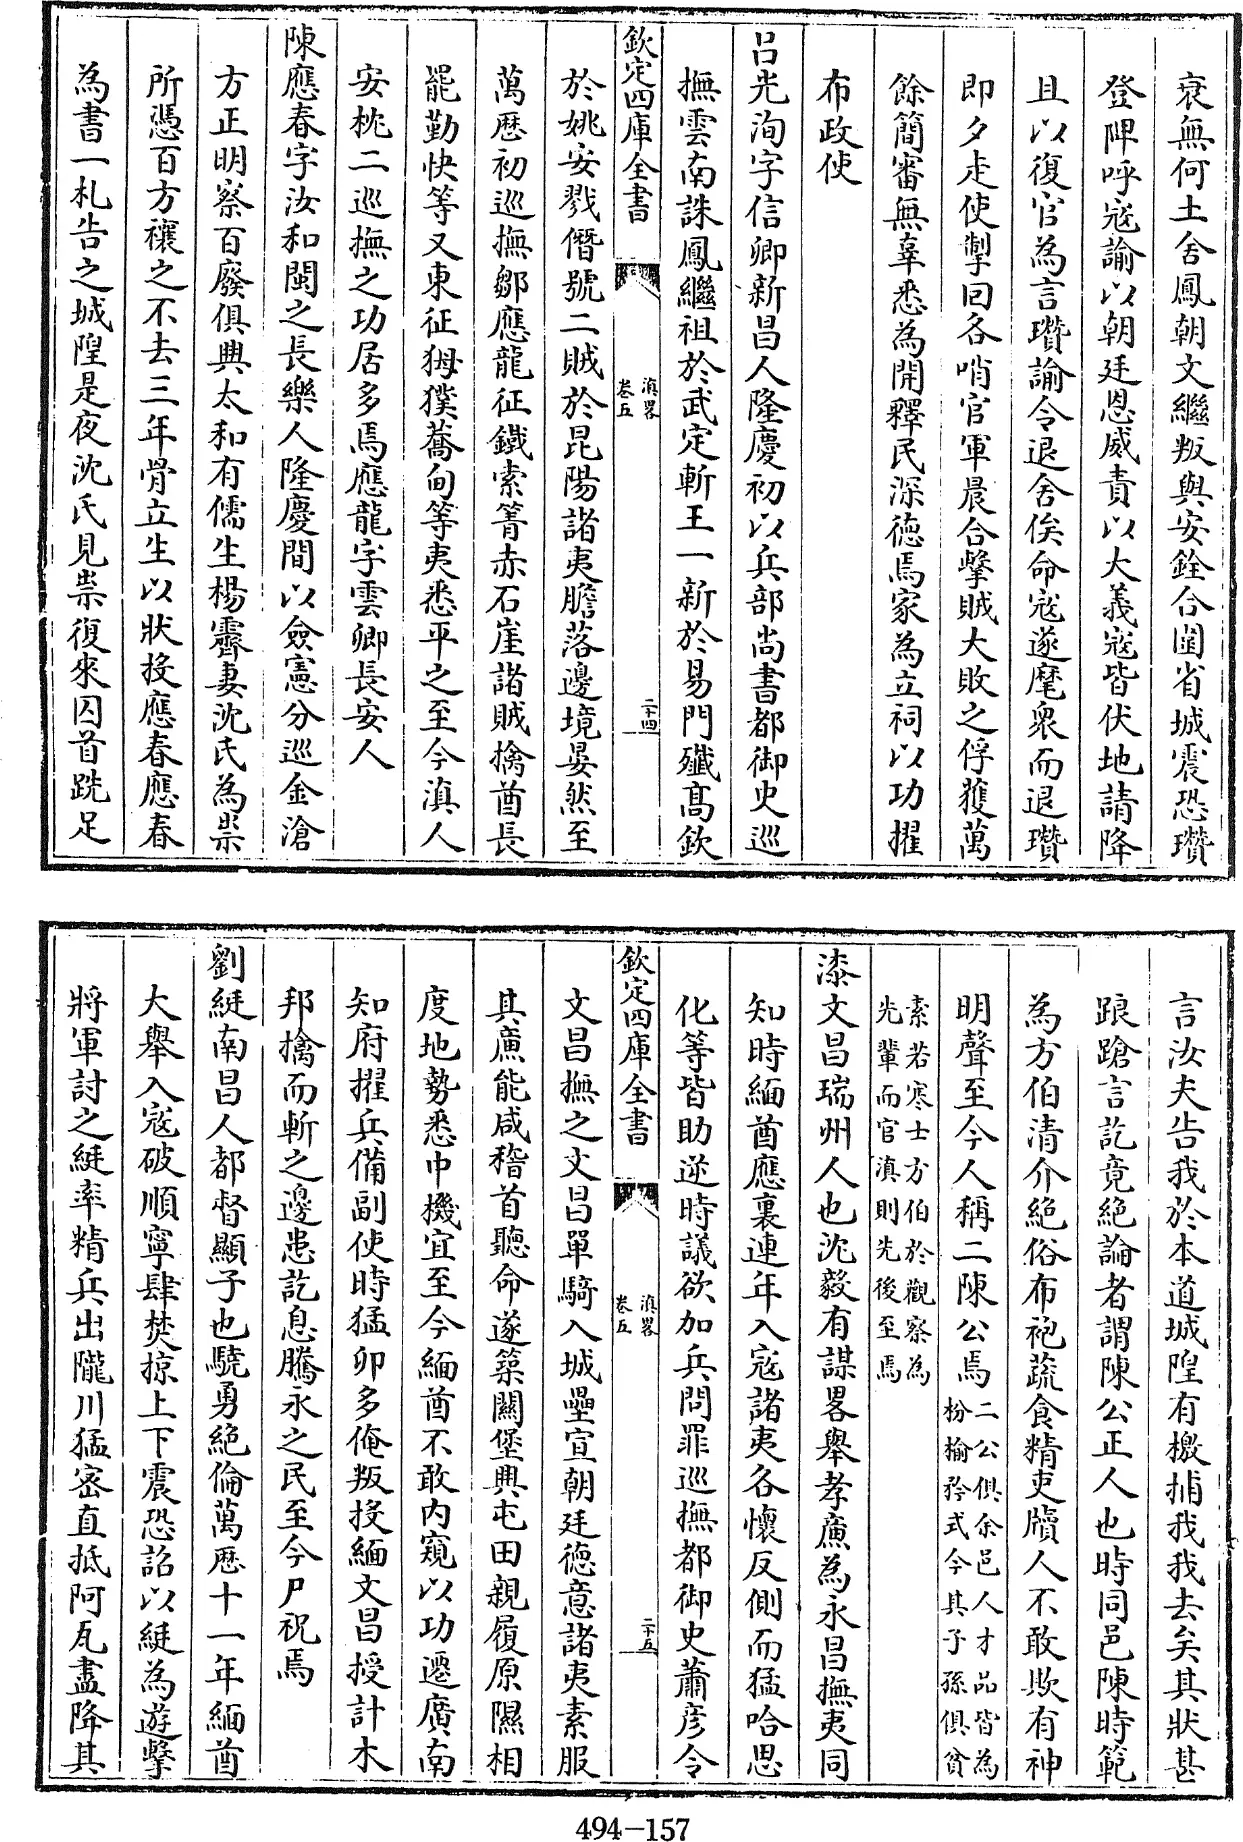 衰無何土舍鳳朝文繼叛與安銓合圍省城震恐瓚
登陴呼宼諭以朝廷恩威責以大義宼皆伏地請降
且以復官為言瓚諭令退舍俟命宼遂麾衆而退瓚
即夕走使掣回各哨官軍晨合擊賊大敗之俘獲萬
餘簡審無辜悉為開釋民深德焉家為立祠以功擢
布政使
吕光洵字信卿新昌人隆慶初以兵部尚書都御史巡
撫雲南誅鳳繼祖於武定斬王一新於易門殱髙欽
欽定四庫全書
滇畧
卷五
二十四
於姚安戮僭號二賊於昆陽諸夷膽落邊境晏然至
萬厯初巡撫鄒應龍征鐵索箐赤石崖諸賊擒酋長
罷勤快等又東征㺟獛蕎甸等夷悉平之至今滇人
安枕二巡撫之功居多焉應龍字雲卿長安人
陳應春字汝和閩之長樂人隆慶間以僉憲分巡金滄
方正明察百廢俱興太和有儒生楊霽妻沈氏為祟
所憑百方禳之不去三年骨立生以狀投應春應春
為書一札告之城隍是夜沈氏見祟復來囚首跣足
言汝夫告我於本道城隍有檄捕我我去矣其狀甚
踉蹌言訖竟絶論者謂陳公正人也時同邑陳時範
為方伯清介絶俗布袍蔬食精吏牘人不敢欺有神
明聲至今人稱二陳公焉
二公俱余邑人才品皆為
枌榆矜式今其子孫俱貧
素若寒士方伯於觀察為
先輩而官滇則先後至焉
漆文昌瑞州人也沈毅有謀畧舉孝亷為永昌撫夷同
知時緬酋應裏連年入宼諸夷各懷反側而猛哈思
化等皆助逆時議欲加兵問罪巡撫都御史蕭彦令
欽定四庫全書
滇畧
卷五
二十五
文昌撫之文昌單騎入城壘宣朝廷德意諸夷素服
其亷能咸稽首聽命遂築關堡興屯田親履原隰相
度地勢悉中機宜至今緬酋不敢内窺以功遷廣南
知府擢兵備副使時猛卯多俺叛投緬文昌授計木
邦擒而斬之邊患訖息騰永之民至今尸祝焉
劉綎南昌人都督顯子也驍勇絶倫萬厯十一年緬酋
大舉入宼破順寧肆焚掠上下震恐詔以綎為遊擊
將軍討之綎率精兵出隴川猛密直抵阿瓦盡降其
494—157